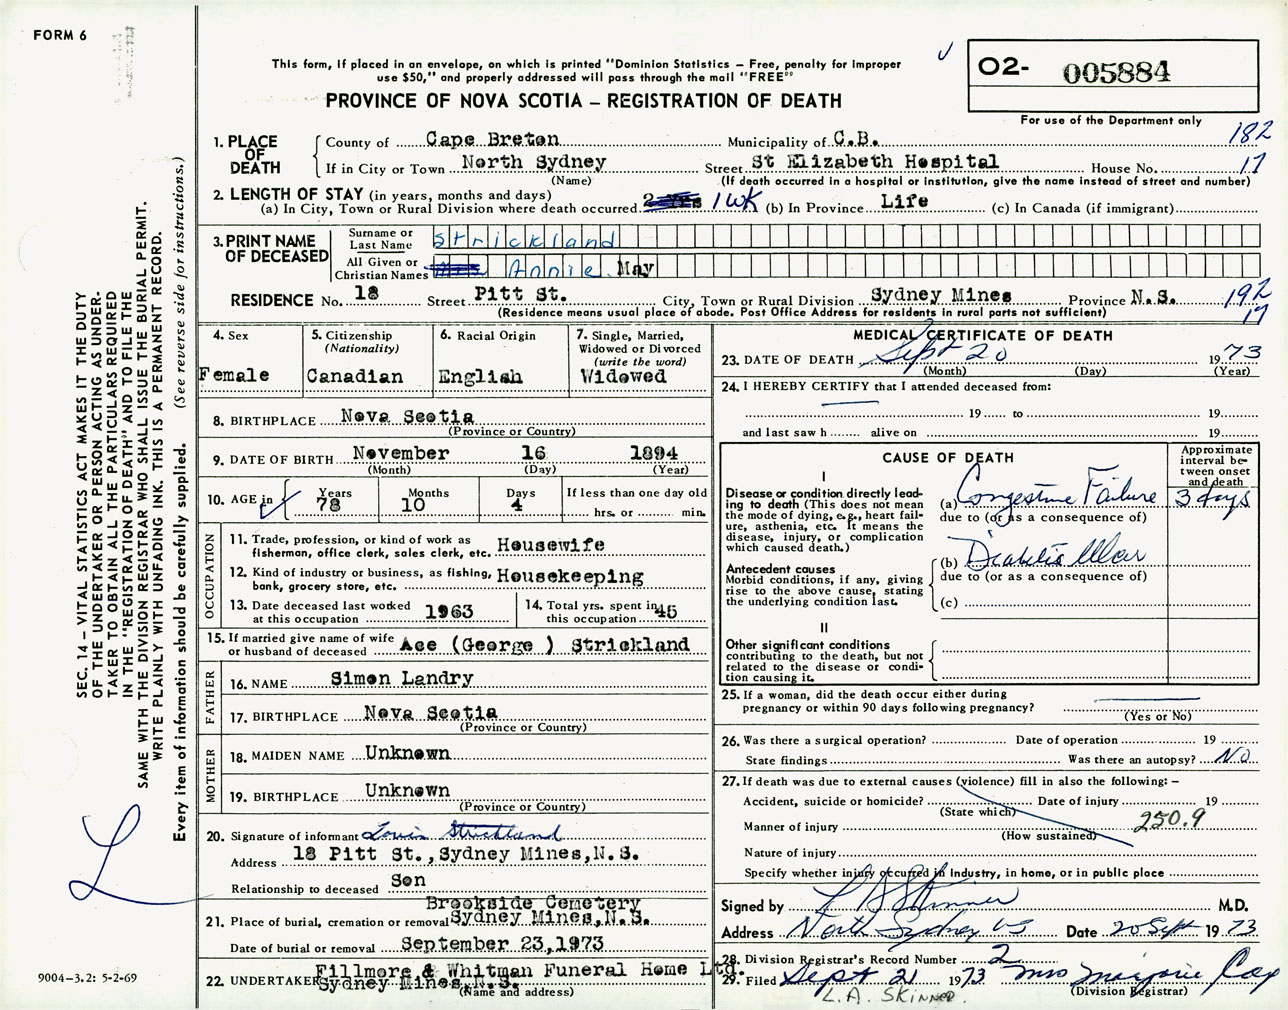 FORM 6
This form, if placed in an envelope, on which is printed "Dominion Statistics – Free, penalty for improper
use $50," and properly addressed will pass through the mail "FREE"
PROVINCE OF NOVA SCOTIA – REGISTRATION OF DEATH
O2- 005884
For use of the Department only
182
17
1. PLACE OF DEATH
County of Cape Breton Municipality of C.B.
If in City or Town North Sydney Street St Elizabeth Hospital House No.
(Name) (If death occurred in a hospital or institution, give the name instead of street and number)
2. LENGTH OF STAY (in years, months and days)
(a) In City, Town or Rural Division where death occurred 1 WK (b) In Province Life (c) In Canada (if immigrant)
3. PRINT NAME OF DECEASED
Surname or Last Name Strickland
All Given or Christian Names Annie May
RESIDENCE No. 18 Street Pitt St. City, Town or Rural Division Sydney Mines Province N.S.
(Residence means usual place of abode. Post Office Address for residents in rural parts not sufficient)
192
17
4. Sex
Female
5. Citizenship
(Nationality)
Canadian
6. Racial Origin
English
7. Single, Married,
Widowed or Divorced
(write the word)
Widowed
8. BIRTHPLACE Nova Scotia
(Province or Country)
9. DATE OF BIRTH November 16 1894
(Month) (Day) (Year)
10. AGE in
Years 78
Months 10
Days 4
If less than one day old
hrs. or min.
OCCUPATION
11. Trade, profession, or kind of work as
fisherman, office clerk, sales clerk, etc. Housewife
12. Kind of industry or business, as fishing,
bank, grocery store, etc. Housekeeping
13. Date deceased last worked
at this occupation 1963
14. Total yrs. spent in
this occupation 45
15. If married give name of wife
or husband of deceased Ace (George ) Strickland
FATHER
16. NAME Simon Landry
17. BIRTHPLACE Nova Scotia
(Province or Country)
MOTHER
18. MAIDEN NAME Unknown
19. BIRTHPLACE Unknown
(Province or Country)
20. Signature of informant Louis Strickland
Address 18 Pitt St.,Sydney Mines,N.S.
Relationship to deceased Son
Brookside Cemetery
21. Place of burial, cremation or removal Sydney Mines,N.S.
Date of burial or removal September 23,1973
22. UNDERTAKER Fillmore & Whitman Funeral Home Ltd.
Sydney Mines,N.S.
(Name and address)
MEDICAL CERTIFICATE OF DEATH
23. DATE OF DEATH Sept 20 1973
(Month) (Day) (Year)
24. I HEREBY CERTIFY that I attended deceased from:
19 to 19
and last saw h alive on 19
CAUSE OF DEATH
Approximate interval between onset and death
I
Disease or condition directly lead-
ing to death (This does not mean
the mode of dying, e.g., heart fail-
ure, asthenia, etc. It means the
disease, injury, or complication
which caused death.)
(a) Congestive Failure 3 days
due to (or as a consequence of)
Antecedent causes
Morbid conditions, if any, giving
rise to the above cause, stating
the underlying condition last.
(b) Diabetis
due to (or as a consequence of)
(c)
II
Other significant conditions
contributing to the death, but not
related to the disease or condi-
tion causing it.
25. If a woman, did the death occur either during
pregnancy or within 90 days following pregnancy?
(Yes or No)
26. Was there a surgical operation? Date of operation 19
State findings Was there an autopsy? No
27. If death was due to external causes (violence) fill in also the following: –
Accident, suicide or homicide? Date of injury 19
(State which)
Manner of injury 250.9
(How sustained)
Nature of injury
Specify whether injury occurred in Industry, in home, or in public place
Signed by L A Skinner M.D.
Address North Sydney NS Date 20 Sept 1973
28. Division Registrar's Record Number 2
29. Filed Sept 21 1973 Mrs Marjorie Cox
(Division Registrar)
L.A. SKINNER.
SEC. 14 – VITAL STATISTICS ACT MAKES IT THE DUTY
OF THE UNDERTAKER OR PERSON ACTING AS UNDER-
TAKER TO OBTAIN ALL THE PARTICULARS REQUIRED
IN THE "REGISTRATION OF DEATH" AND TO FILE THE
SAME WITH THE DIVISION REGISTRAR WHO SHALL ISSUE THE BURIAL PERMIT.
WRITE PLAINLY WITH UNFADING INK. THIS IS A PERMANENT RECORD.
Every item of information should be carefully supplied. (See reverse side for instructions.)
L
9004-3.2: 5-2-69